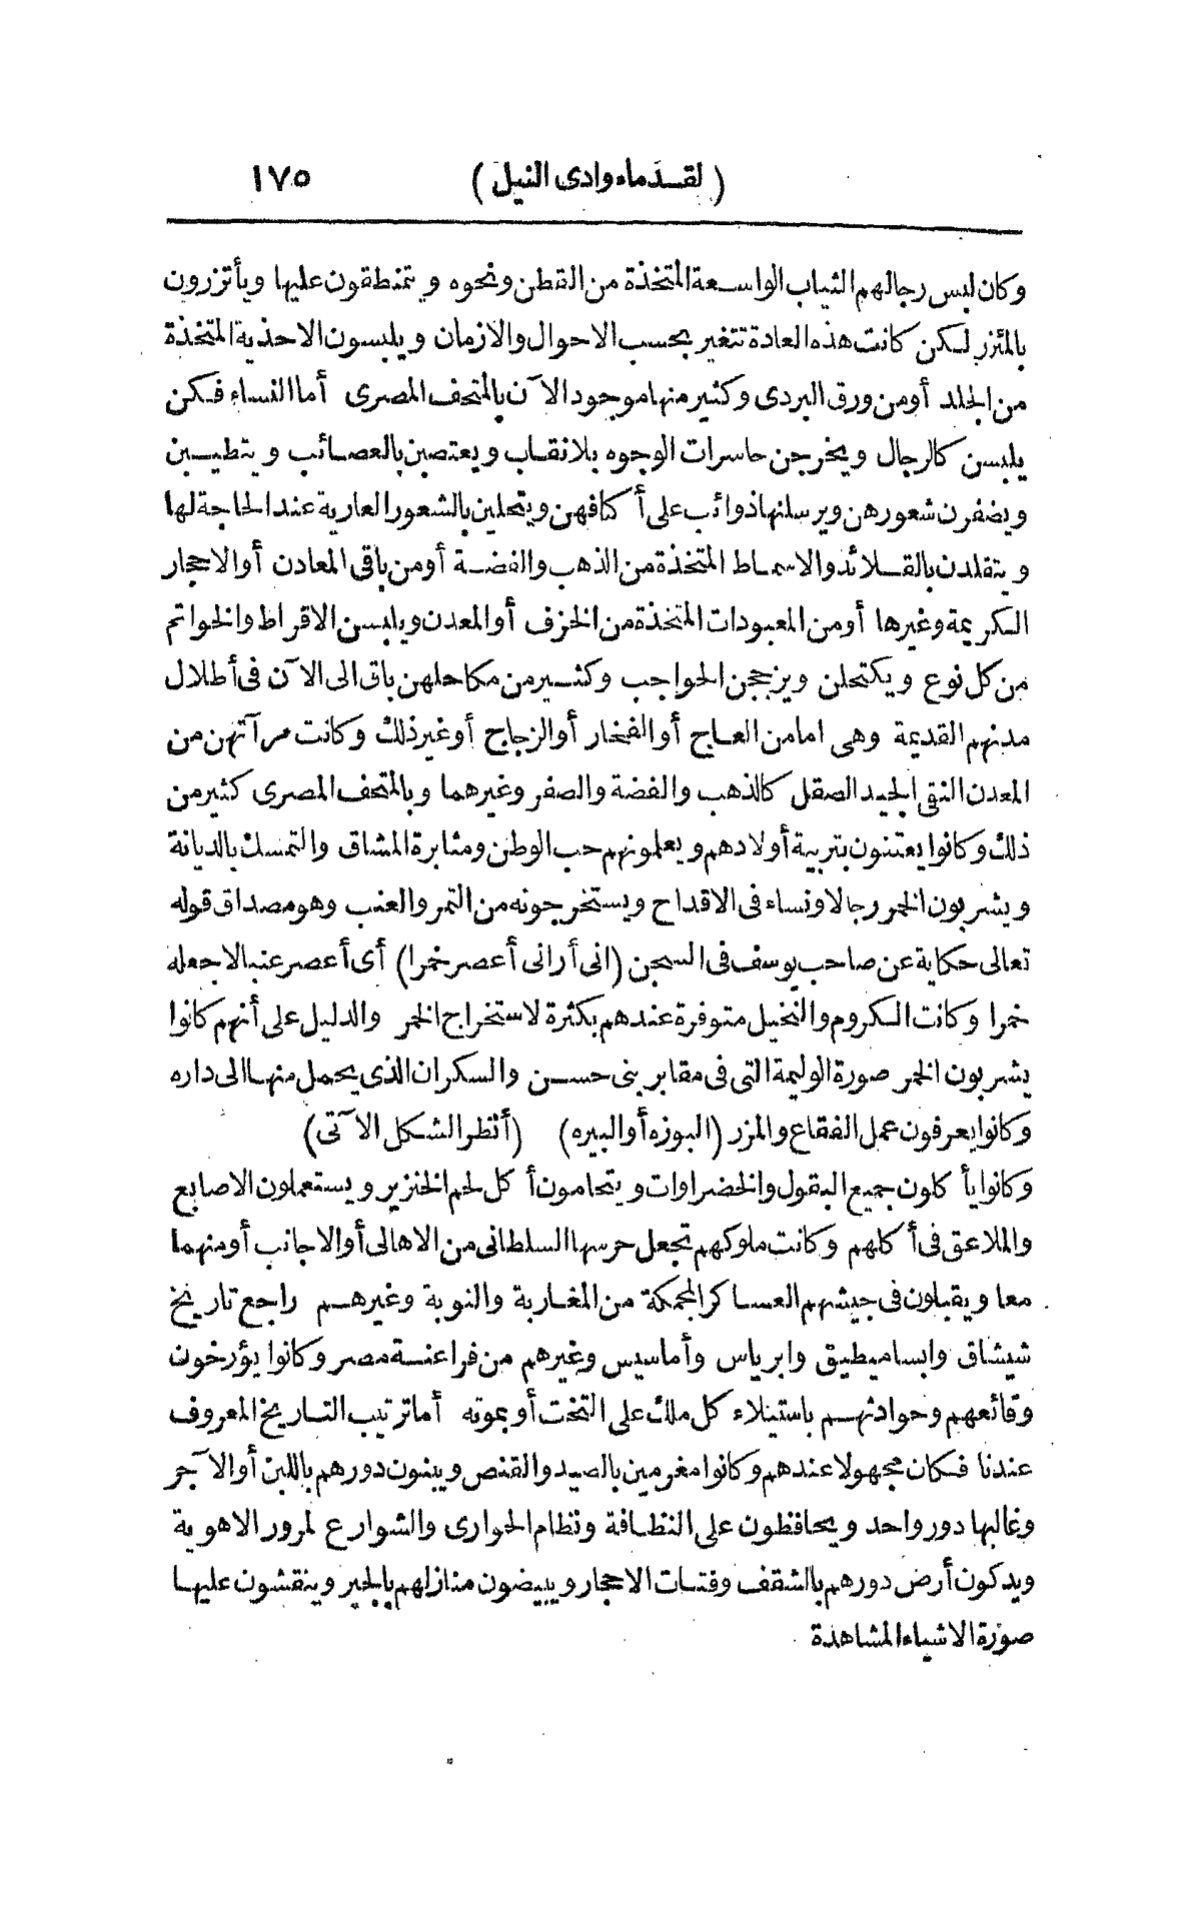 (لقدماء وادى النيل) ١٧٥
وكان لبس رجالهم الثياب الواسعة المتخذة من القطن ونحوه ويتمنطقون عليها ويأتزرون
بالمئزر لكن كانت هذه العادة تتغير بحسب الاحوال والازمان ويلبسون الاحذية المتخذة
من الجلد أو من ورق البردى وكثير منها موجود الآن بالمتحف المصرى أما النساء فكن
يلبسن كالرجال ويخرجن حاسرات الوجوه بلا نقاب ويعتصبن بالعصائب ويتطيبن
ويضفرن شعورهن ويرسلنها ذوائب على أكتافهن ويتحلين بالشعور العارية عند الحاجة لها
ويتقلدن بالقلائد والاسماط المتخذة من الذهب والفضة أو من باقى المعادن أو الاحجار
الكريمة وغيرها أو من المعبودات المتخذة من الخزف أو المعدن ويلبسن الاقراط والخواتم
من كل نوع ويكتحلن ويزججن الحواجب وكثير من مكاحلهن باق الى الآن فى أطلال
مدنهم القديمة وهى اما من العاج أو الفخار أو الزجاج أو غير ذلك وكانت مرآتهن من
المعدن النقى الجيد الصقل كالذهب والفضة والصفر وغيرهما وبالمتحف المصرى كثير من
ذلك وكانوا يعتنون بتربية أولادهم ويعلمونهم حب الوطن ومثابرة المشاق والتمسك بالديانة
ويشربون الخمر رجالا ونساء فى الاقداح ويستخرجونه من التمر والعنب وهو مصداق قوله
تعالى حكاية عن صاحب يوسف فى السجن (انى أرانى أعصر خمرا) أى أعصر عنبا لاجعله
خمرا وكانت الكروم والنخيل متوفرة عندهم بكثرة لاستخراج الخمر والدليل على أنهم كانوا
يشربون الخمر صورة الوليمة التى فى مقابر بنى حسن والسكران الذى يحمل منها الى داره
وكانوا يعرفون عمل الفقاع والمزر (البوزه أو البيره) (أنظر الشكل الآتى)
وكانوا يأكلون جميع البقول والخضراوات ويتحامون أكل لحم الخنزير ويستعملون الاصابع
والملاعق فى أكلهم وكانت ملوكهم تجعل حرسها السلطانى من الاهالى أو الاجانب أو منهما
معا ويقبلون فى جيشهم العساكر المجمكة من المغاربة والنوبة وغيرهم راجع تاريخ
شيشاق وابساميطيق وابرياس وأماسيس وغيرهم من فراعنة مصر وكانوا يؤرخون
وقائعهم وحوادثهم باستيلاء كل ملك على التخت أو بموته أما ترتيب التاريخ المعروف
عندنا فكان مجهولا عندهم وكانوا مغرمين بالصيد والقنص ويبنون دورهم باللبن أو الآجر
وغالبها دور واحد ويحافظون على النظافة ونظام الحوارى والشوارع لمرور الاهوية
ويدكون أرض دورهم بالشقف وفتات الاحجار ويبيضون منازلهم بالجير وينقشون عليها
صورة الاشياء المشاهدة